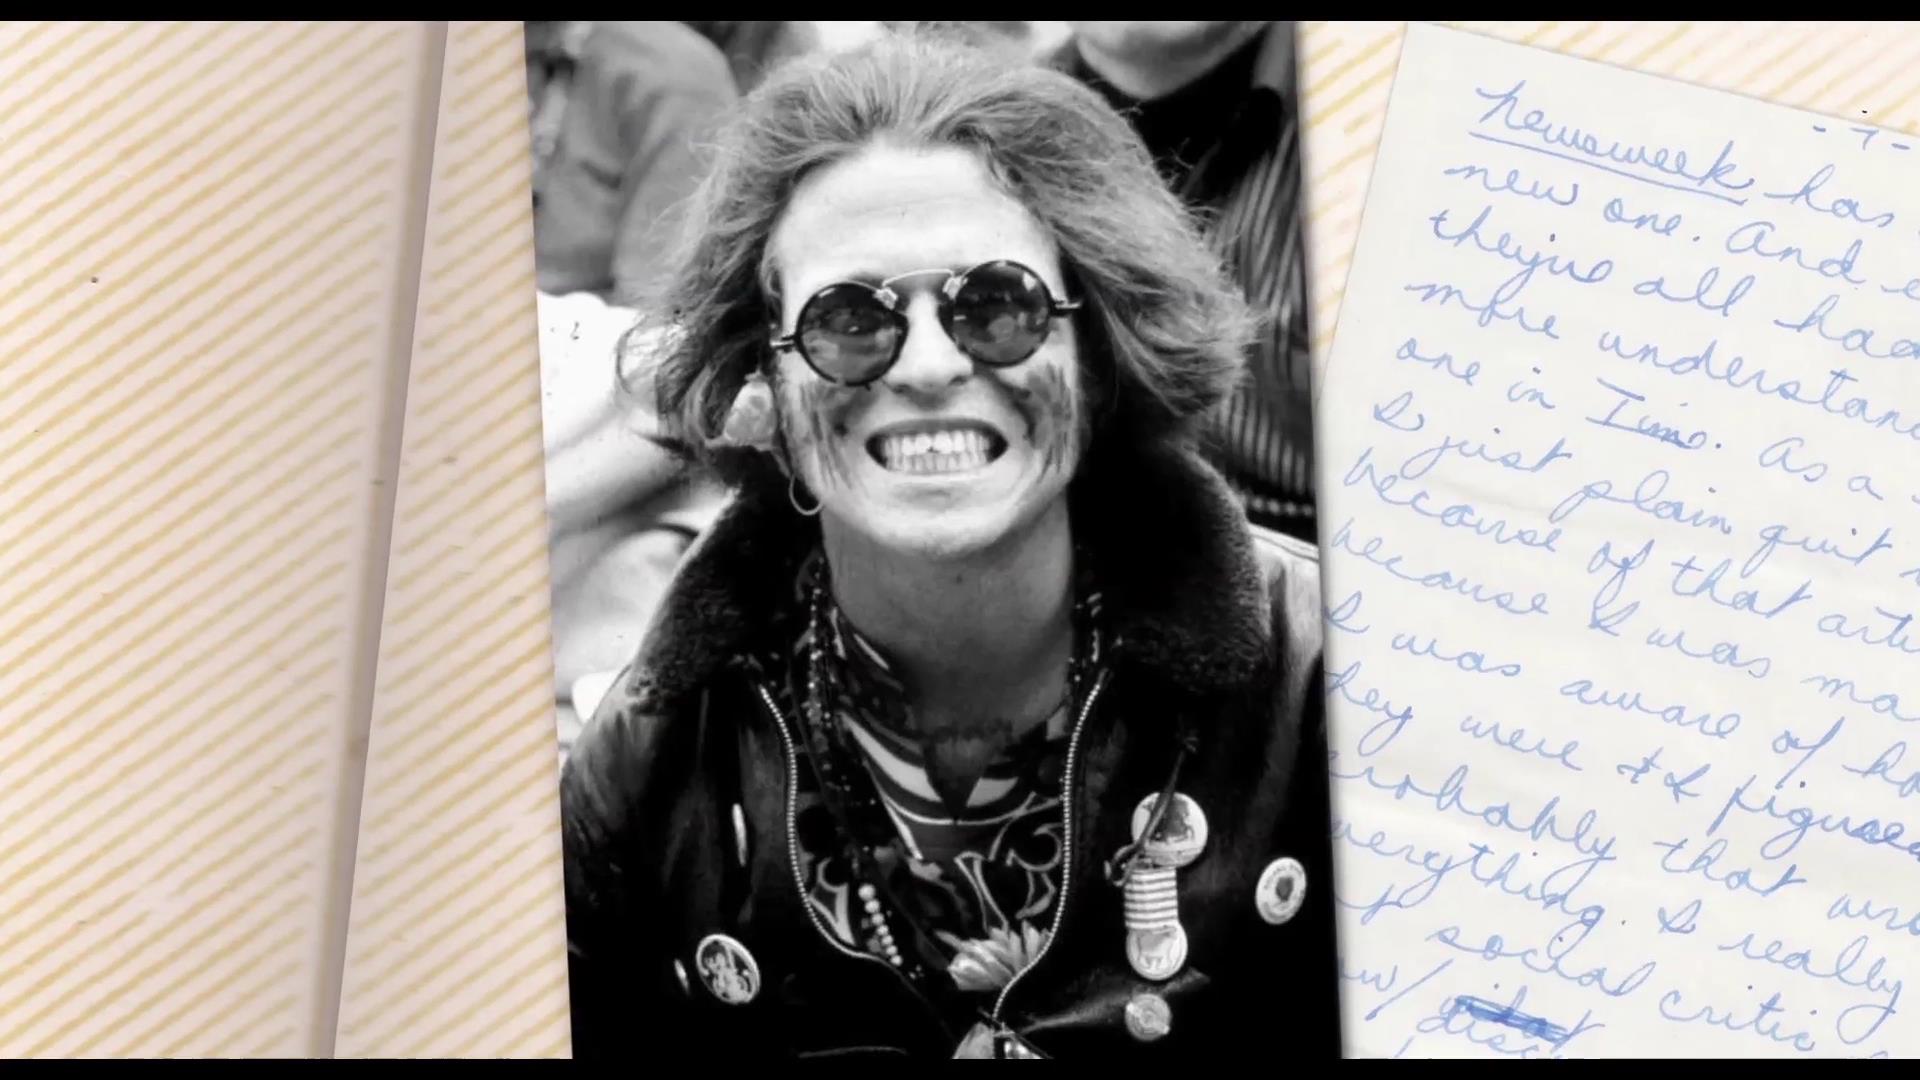 - 7 -
Newsweek has
new one. And
they've all had
more understand
one in Time. As a
I just plain quit
because of that arti
because I was ma
I was aware of ho
they were & I figured
probably that
everything. I really
social critic